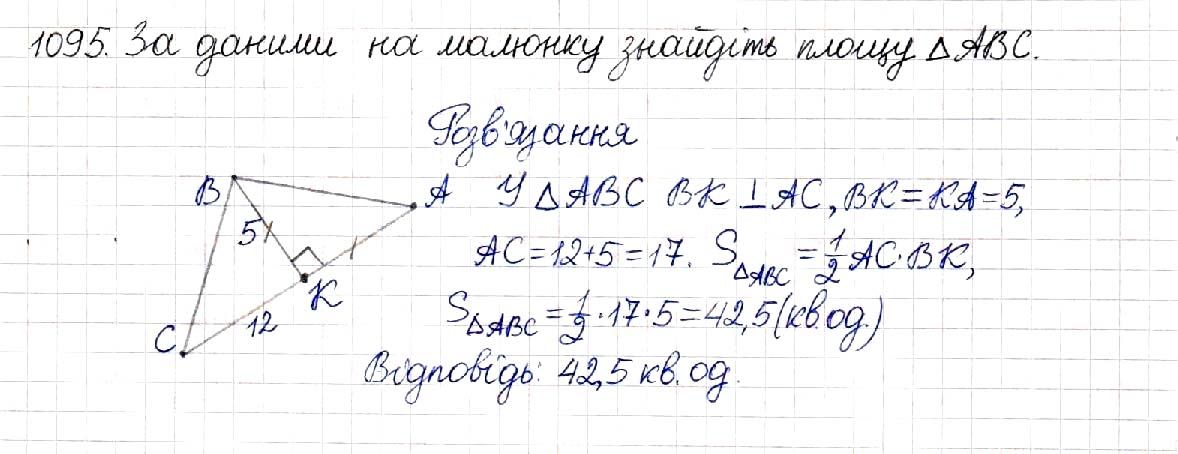 1095. За даними на малюнку знайдіть площу △ABC.
Розв'язання
B
A
5
K
12
C
У △ABC BK ⊥ AC, BK = KA = 5,
AC = 12 + 5 = 17. S△ABC = 1/2 AC · BK,
S△ABC = 1/2 · 17 · 5 = 42,5 (кв. од.)
Відповідь: 42,5 кв. од.